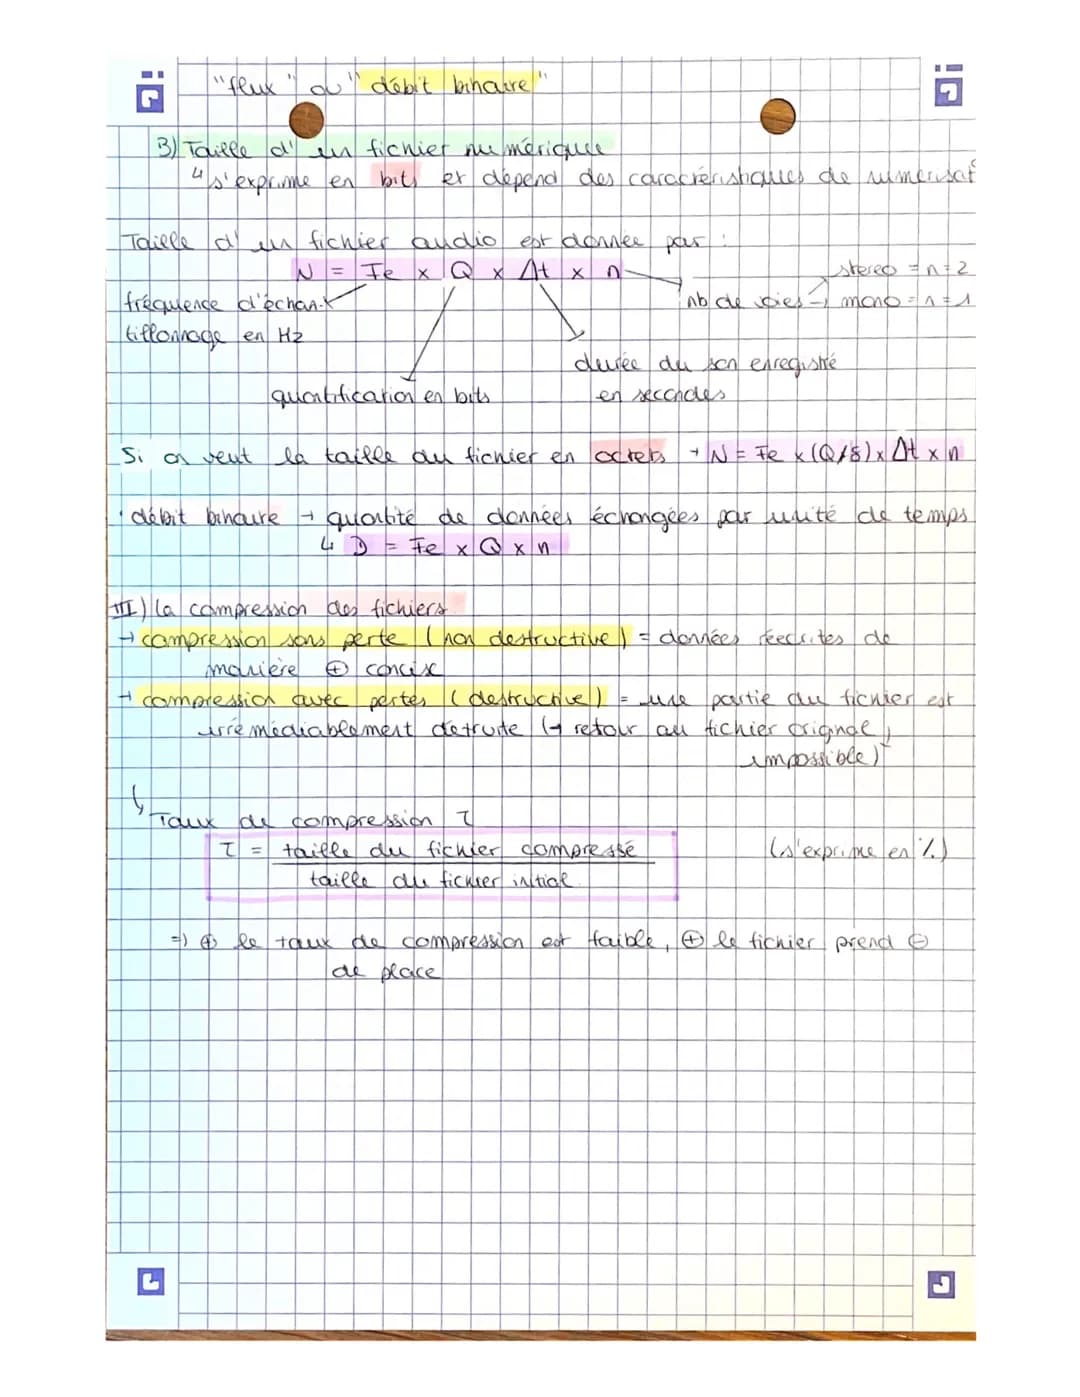 "flux" ou "débit binaire"
3) Taille d'un fichier numérique
↳ s'exprime en bits et dépend des caractéristiques de numérisat°
Taille d'un fichier audio est donnée par :
N = Fe x Q x Δt x n
stereo = n = 2
nb de voies → mono = n = 1
fréquence d'échan-
tillonnage en Hz
durée du son enregistré
en secondes
quantification en bits
Si on veut la taille du fichier en octets → N = Fe x (Q/8) x Δt x n
• débit binaire → quantité de données échangées par unité de temps
↳ D = Fe x Q x n
III) La compression des fichiers
→ compression sans perte (non destructive) = données réecrites de
manière ⊕ concise
→ compression avec pertes (destructive) = une partie du fichier est
irrémédiablement détruite (↳ retour au fichier orignal
impossible)
↳ Taux de compression τ
τ = taille du fichier compressé
taille du fichier initial
(s'exprime en %)
=) ⊕ le taux de compression est faible, ⊕ le fichier prend ⊖
de place